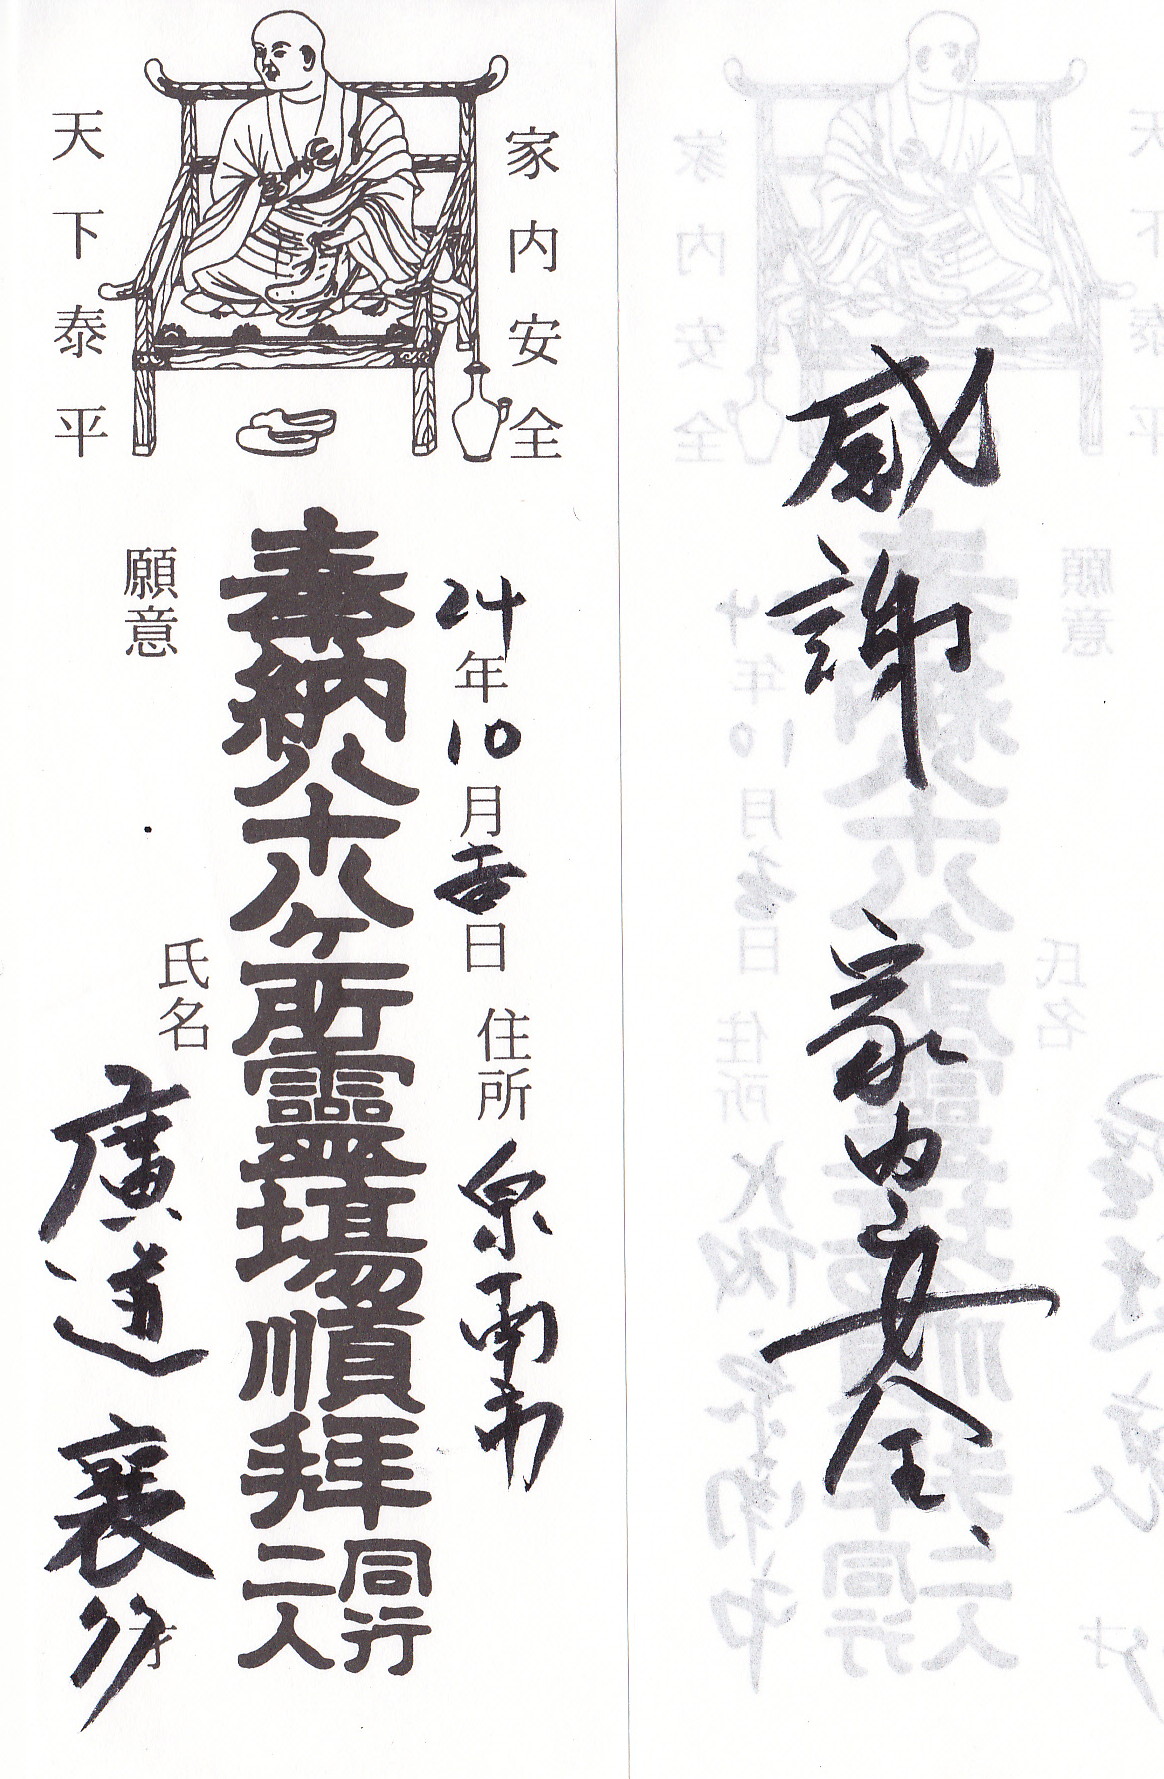 家内安全
天下泰平
奉納八十八ヶ所霊場順拝
同行
二人
24年10月吉日 住所 泉南市
願意
氏名 廣道 襄
才
感謝 家内安全、